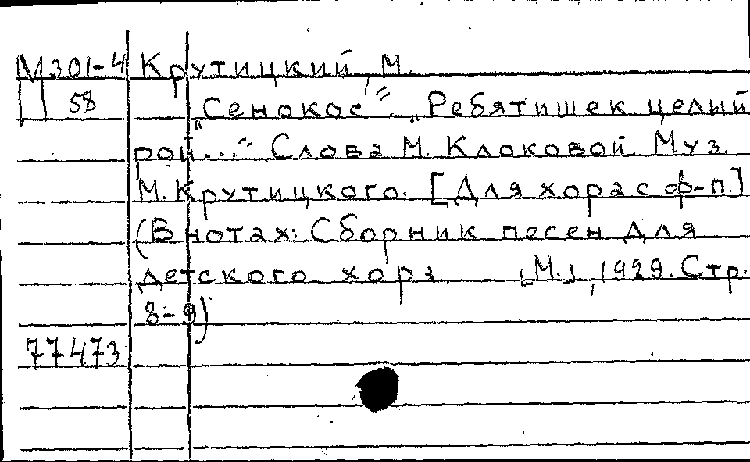 М301-4 Крутицкий, М.
П 58 „Сенокос“ „Ребятишек целый
рой..." Слова М. Клоковой Муз.
М. Крутицкого. [Для хора с ф-п.]
(В нотах: Сборник песен для
детского хора [М.], 1929. Стр.
8-9)
77473